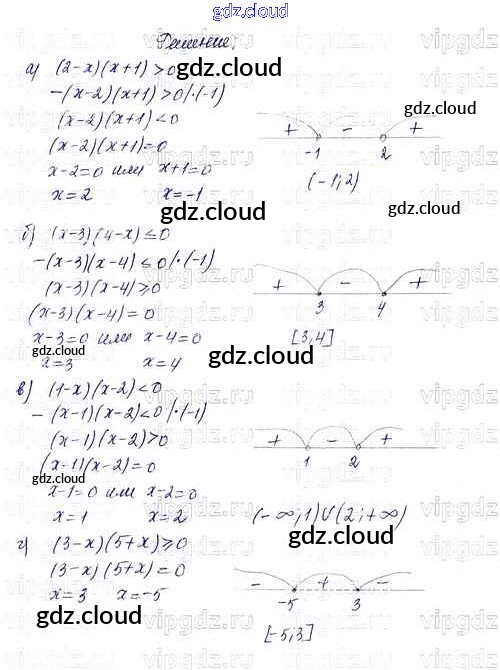 gdz.cloud
Решение.
а) (2-x)(x+1)>0
-(x-2)(x+1)>0/·(-1)
(x-2)(x+1)<0
(x-2)(x+1)=0
x-2=0 или x+1=0
x=2 x=-1
+ - +
-1 2
(-1;2)
б) (x-3)(4-x)≤0
-(x-3)(x-4)≤0/·(-1)
(x-3)(x-4)≥0
(x-3)(x-4)=0
x-3=0 или x-4=0
x=3 x=4
+ - +
3 4
[3,4]
в) (1-x)(x-2)<0
-(x-1)(x-2)<0/·(-1)
(x-1)(x-2)>0
(x-1)(x-2)=0
x-1=0 или x-2=0
x=1 x=2
+ - +
1 2
(-∞,1)∪(2;+∞)
г) (3-x)(5+x)≥0
(3-x)(5+x)=0
x=3 x=-5
- + -
-5 3
[-5,3]
gdz.cloud
gdz.cloud
gdz.cloud
gdz.cloud
gdz.cloud
gdz.cloud
gdz.cloud
gdz.cloud
gdz.cloud
gdz.cloud
gdz.cloud
gdz.cloud
gdz.cloud